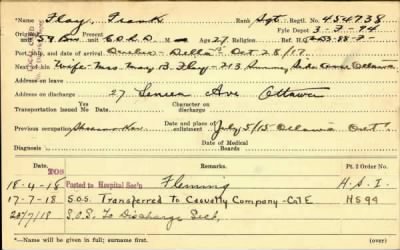 *Name Flay, Frank Rank Sgt. Regtl. No. 454738
Fyle Depot 3-7-94
Original unit 59 Bn. unit C.O.R.D. M Age 27 Religion Ref. H.Q.
Port, ship and date of arrival Oct 28/17.
Next of kin Wife - Mrs. May B. Flay - 713 Ave. Ottawa
Address on leave
Address on discharge 27 Seneca Ave Ottawa
Transportation issued No. Date Character on discharge
Previous occupation Date and place of enlistment July 5/15 Ottawa Ont
Diagnosis Date of Medical Boards
Date Remarks. Pt. I Order No.
TOS
18-4-18 Posted to Hospital Sec'n Fleming H.S.I.
17-7-18 S.O.S. Transferred To Casualty Company - Cat E HS 99
20/7/18 S.O.S. To Discharge Sect.
*—Name will be given in full; surname first.